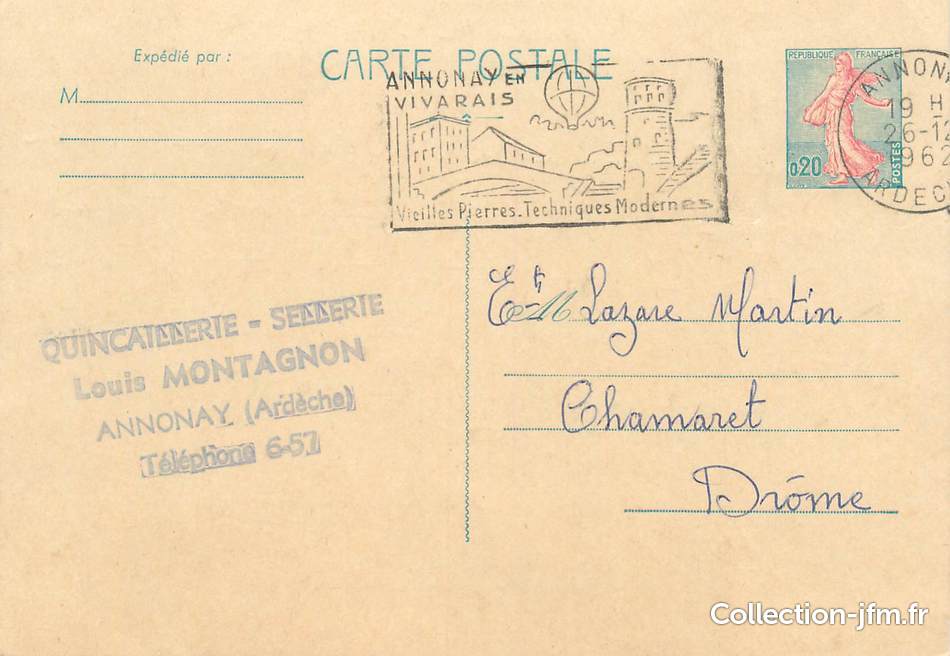 Expédié par :
M
CARTE POSTALE
ANNONAY EN
VIVARAIS
Vieilles Pierres_Techniques Modernes
REPUBLIQUE FRANÇAISE
0,20
POSTES
ANNONA
19 H
26-12
962
ARDEC
Ets M Lazare Martin
Chamaret
Drôme
QUINCAILLERIE - SELLERIE
Louis MONTAGNON
ANNONAY (Ardèche)
Téléphone 6-57
Collection-jfm.fr